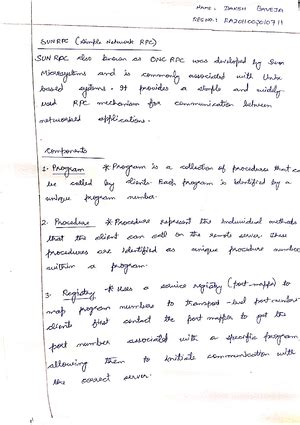 NAME: DAKSH BAVEJA
REG NO: RA2011003010711
SUN RPC (Simple Network RPC)
SUN RPC also known as ONC RPC was developed by Sun
Microsystems and is commonly associated with Unix
based systems. It provides a simple and widely
used RPC mechanism for communication between
networked applications.
Components
1. Program * Program is a collection of procedures that can
be called by clients. Each program is identified by a
unique program number.
2. Procedure * Procedure represent the individual methods
that the client can call on the remote server. These
procedures are identified as unique procedure number
within a program.
3. Registry * Uses a service registry (port mapper) to
map program numbers to transport-level port numbers
clients first contact the port mapper to get the
port number associated with a specific program
allowing them to initiate communication with
the correct server.